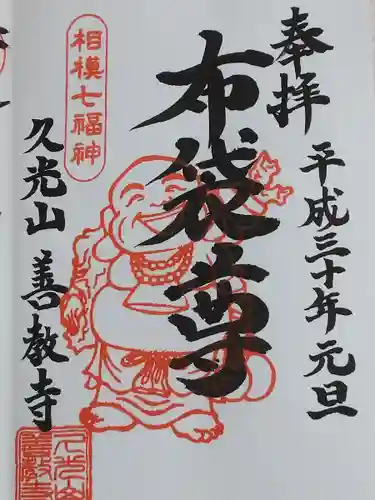 奉拝
平成三十年元旦
布袋尊
相模七福神
久光山 善教寺